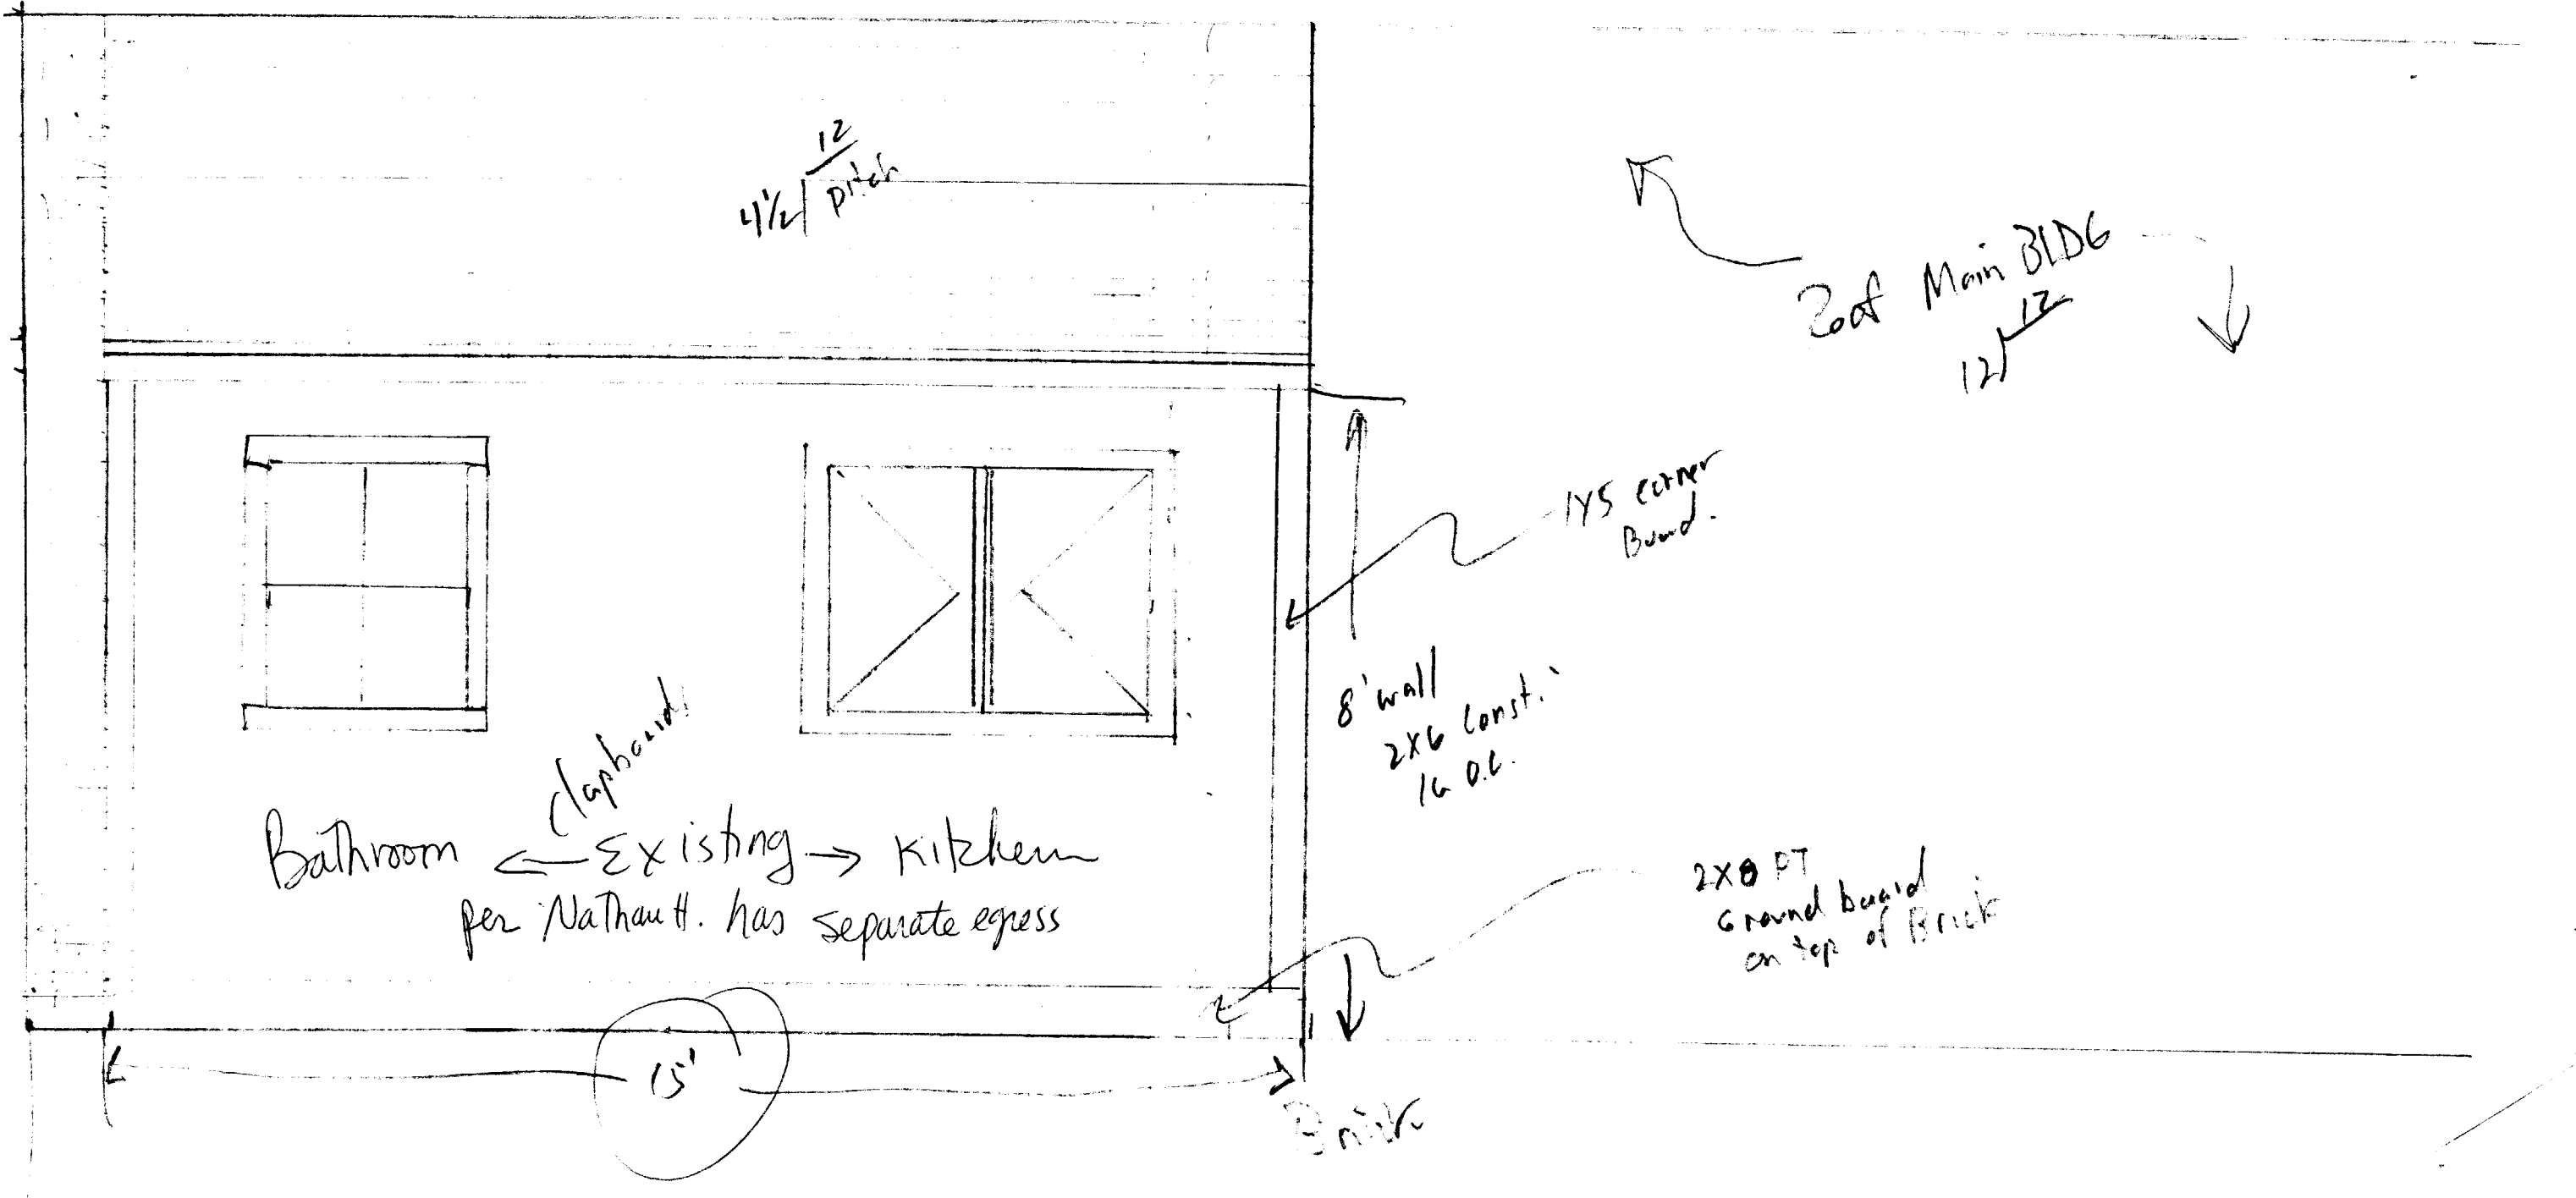 12
4 1/2 pitch
Roof Main BLDG
12
12
1x5 corner
Board.
8' wall
2x6 Const.
16 O.C.
clapboards
Bathroom ← Existing → Kitchen
per Nathan H. has separate egress
2x8 PT
Ground board
on top of Brick
15'
Brick